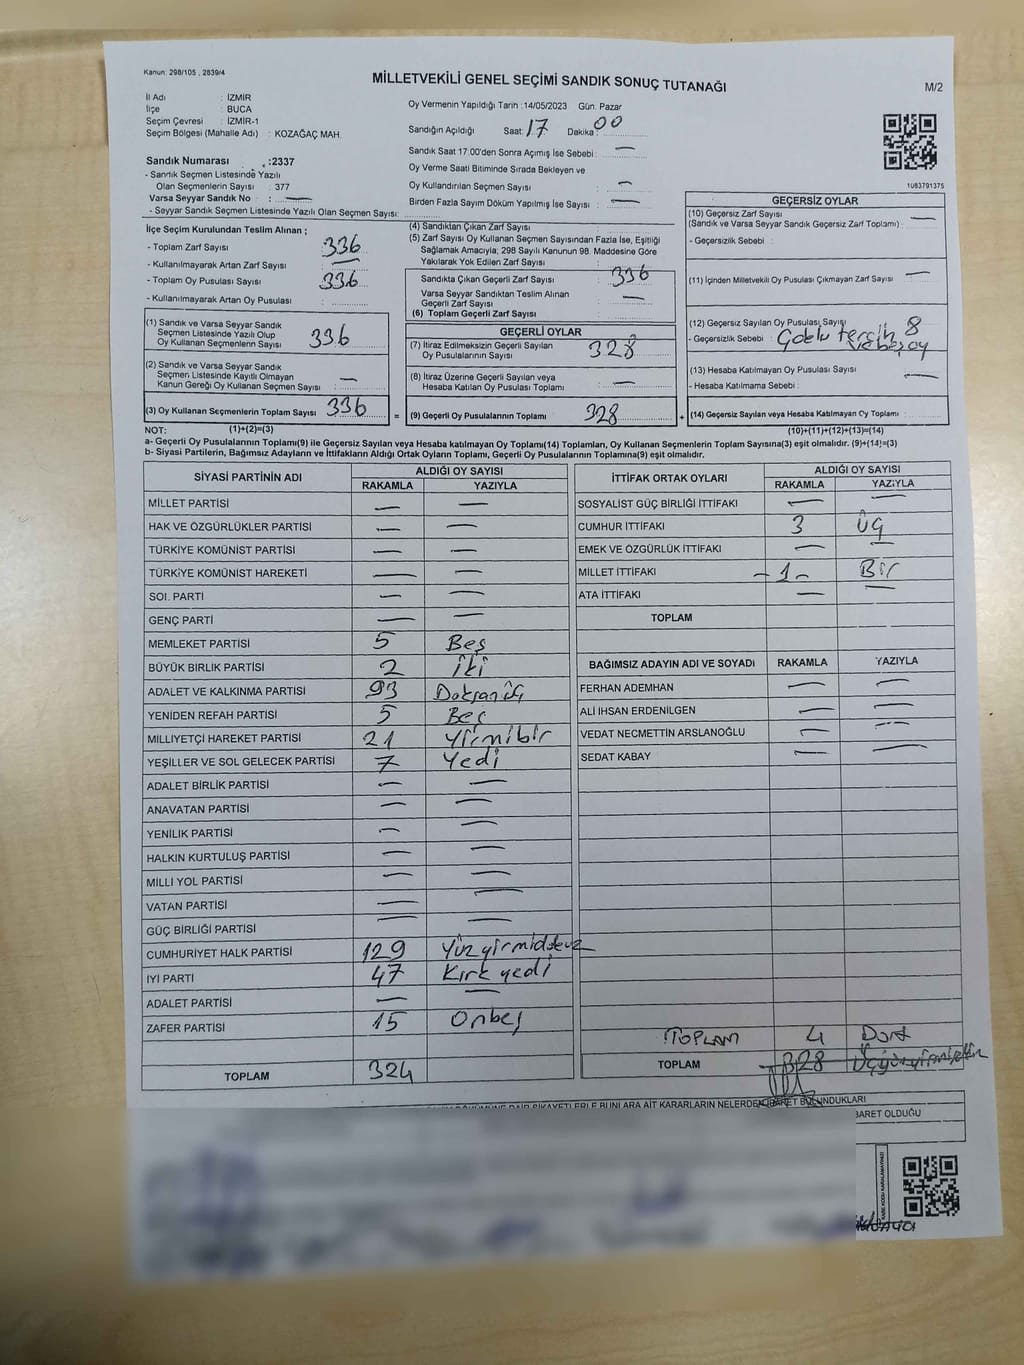 Kanun: 298/105 , 2839/4
MİLLETVEKİLİ GENEL SEÇİMİ SANDIK SONUÇ TUTANAĞI
M/2
İl Adı : İZMİR
İlçe : BUCA
Seçim Çevresi : İZMİR-1
Seçim Bölgesi (Mahalle Adı) : KOZAĞAÇ MAH.
Oy Vermenin Yapıldığı Tarih :14/05/2023 Gün: Pazar
Sandığın Açıldığı Saat: 17 Dakika: 00
Sandık Saat 17:00'den Sonra Açımış İse Sebebi : —
Oy Verme Saati Bitiminde Sırada Bekleyen ve
Oy Kullandırılan Seçmen Sayısı : —
Birden Fazla Sayım Döküm Yapılmış İse Sayısı : —
Sandık Numarası : 2337
- Sandık Seçmen Listesinde Yazılı
Olan Seçmenlerin Sayısı : 377
Varsa Seyyar Sandık No : —
- Seyyar Sandık Seçmen Listesinde Yazılı Olan Seçmen Sayısı:
1083791375
İlçe Seçim Kurulundan Teslim Alınan ;
- Toplam Zarf Sayısı : 336
- Kullanılmayarak Artan Zarf Sayısı : —
- Toplam Oy Pusulası Sayısı : 336
- Kullanılmayarak Artan Oy Pusulası :
(1) Sandık ve Varsa Seyyar Sandık
Seçmen Listesinde Yazılı Olup
Oy Kullanan Seçmenlerin Sayısı : 336
(2) Sandık ve Varsa Seyyar Sandık
Seçmen Listesinde Kayıtlı Olmayan
Kanun Gereği Oy Kullanan Seçmen Sayısı : —
(3) Oy Kullanan Seçmenlerin Toplam Sayısı : 336
(4) Sandıktan Çıkan Zarf Sayısı :
(5) Zarf Sayısı Oy Kullanan Seçmen Sayısından Fazla İse, Eşitliği
Sağlamak Amacıyla; 298 Sayılı Kanunun 98. Maddesine Göre
Yakılarak Yok Edilen Zarf Sayısı :
Sandıkta Çıkan Geçerli Zarf Sayısı : 336
Varsa Seyyar Sandıktan Teslim Alınan
Geçerli Zarf Sayısı : —
(6) Toplam Geçerli Zarf Sayısı :
GEÇERLİ OYLAR
(7) İtiraz Edilmeksizin Geçerli Sayılan
Oy Pusulalarının Sayısı : 328
(8) İtiraz Üzerine Geçerli Sayılan veya
Hesaba Katılan Oy Pusulası Toplamı : —
= (9) Geçerli Oy Pusulalarının Toplamı : 328 +
GEÇERSİZ OYLAR
(10) Geçersiz Zarf Sayısı : —
(Sandık ve Varsa Seyyar Sandık Geçersiz Zarf Toplamı)
- Geçersizlik Sebebi :
(11) İçinden Milletvekili Oy Pusulası Çıkmayan Zarf Sayısı : —
(12) Geçersiz Sayılan Oy Pusulası Sayısı : 8
- Geçersizlik Sebebi : Çoklu tercih
ve boş oy
(13) Hesaba Katılmayan Oy Pusulası Sayısı : —
- Hesaba Katılmama Sebebi :
(14) Geçersiz Sayılan veya Hesaba Katılmayan Oy Toplamı :
NOT: (1)+(2)=(3) (10)+(11)+(12)+(13)=(14)
a- Geçerli Oy Pusulalarının Toplamı(9) ile Geçersiz Sayılan veya Hesaba katılmayan Oy Toplamı(14) Toplamları, Oy Kullanan Seçmenlerin Toplam Sayısına(3) eşit olmalıdır. (9)+(14)=(3)
b- Siyasi Partilerin, Bağımsız Adayların ve İttifakların Aldığı Ortak Oyların Toplamı, Geçerli Oy Pusulalarının Toplamına(9) eşit olmalıdır.
SİYASİ PARTİNİN ADI ALDIĞI OY SAYISI
RAKAMLA YAZIYLA
MİLLET PARTİSİ — —
HAK VE ÖZGÜRLÜKLER PARTİSİ — —
TÜRKİYE KOMÜNİST PARTİSİ — —
TÜRKİYE KOMÜNİST HAREKETİ — —
SOL PARTİ — —
GENÇ PARTİ — —
MEMLEKET PARTİSİ 5 Beş
BÜYÜK BİRLİK PARTİSİ 2 İki
ADALET VE KALKINMA PARTİSİ 93 Doksanüç
YENİDEN REFAH PARTİSİ 5 Beş
MİLLİYETÇİ HAREKET PARTİSİ 21 Yirmibir
YEŞİLLER VE SOL GELECEK PARTİSİ 7 Yedi
ADALET BİRLİK PARTİSİ — —
ANAVATAN PARTİSİ — —
YENİLİK PARTİSİ — —
HALKIN KURTULUŞ PARTİSİ — —
MİLLİ YOL PARTİSİ — —
VATAN PARTİSİ — —
GÜÇ BİRLİĞİ PARTİSİ — —
CUMHURİYET HALK PARTİSİ 129
İYİ PARTİ 47 Kırk yedi
ADALET PARTİSİ — —
ZAFER PARTİSİ 15 Onbeş
TOPLAM 324
İTTİFAK ORTAK OYLARI ALDIĞI OY SAYISI
RAKAMLA YAZIYLA
SOSYALİST GÜÇ BİRLİĞİ İTTİFAKI — —
CUMHUR İTTİFAKI 3 Üç
EMEK VE ÖZGÜRLÜK İTTİFAKI — —
MİLLET İTTİFAKI -1- Bir
ATA İTTİFAKI — —
TOPLAM
BAĞIMSIZ ADAYIN ADI VE SOYADI RAKAMLA YAZIYLA
FERHAN ADEMHAN — —
ALİ İHSAN ERDENİLGEN — —
VEDAT NECMETTİN ARSLANOĞLU — —
SEDAT KABAY — —
TOPLAM 4 Dört
TOPLAM 328
BARET BULUNDUKLARI
BARET OLDUĞU